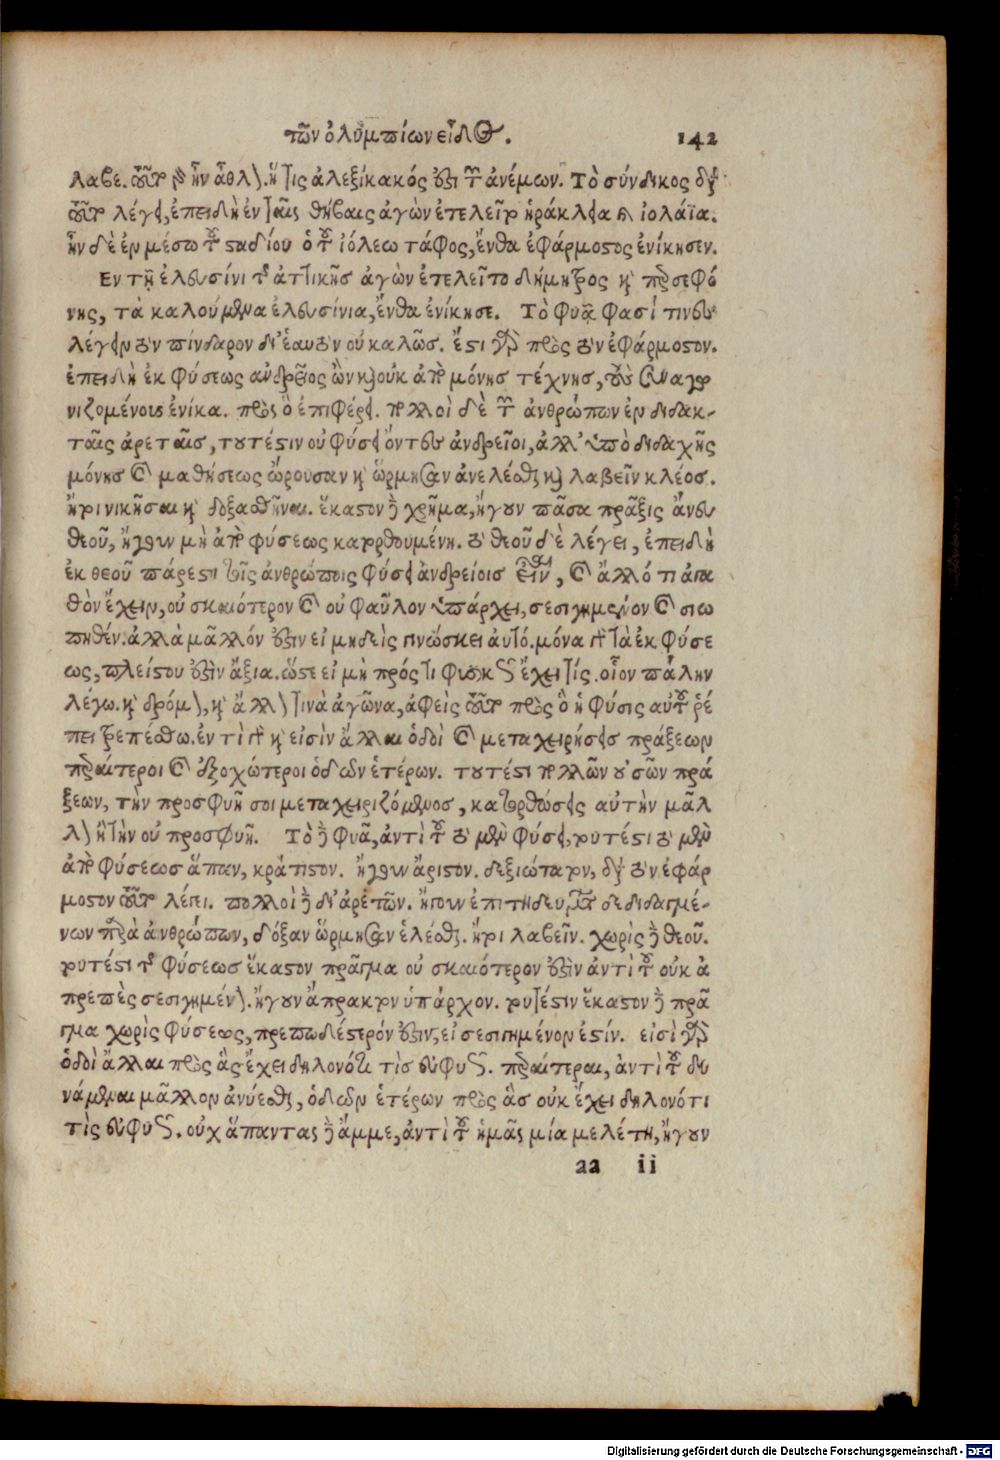 τῶν ὀλυμπίων εἶδος. 142
λαβε. τοῦτο γὰρ ἦν ἆθλον. ἥτις ἀλεξίκακός ἐστι τῶν ἀνέμων. Τὸ σύνδικος δὲ
τοῦτο λέγει, ἐπειδὴ ἐν ταῖς θήβαις ἀγὼν ἐτελεῖτο ἡράκλεια καὶ ἰολάϊα.
ἦν δὲ ἐν μέσω τοῦ σταδίου ὁ τοῦ ἰόλεω τάφος, ἔνθα ἐφάρμοστος ἐνίκησεν.
Εν τῇ ἐλευσίνι τῆς ἀττικῆς ἀγὼν ἐτελεῖτο δήμητρος καὶ περσεφό
νης, τὰ καλούμενα ἐλευσίνια, ἔνθα ἐνίκησε. Τὸ φυᾷ φασί τινες
λέγειν τὸν πίνδαρον δι' ἑαυτὸν οὐ καλῶς. ἔστι γὰρ πρὸς τὸν ἐφάρμοστον.
ἐπειδὴ ἐκ φύσεως ἀνδρεῖος ὢν καὶ οὐκ ἀπὸ μόνης τέχνης, τοὺς συναγω
νιζομένους ἐνίκα. πρὸς ὃ ἐπιφέρει. πολλοὶ δὲ τῶν ἀνθρώπων ἐν διδακ-
ταῖς ἀρεταῖς, τουτέστιν οὐ φύσει ὄντες ἀνδρεῖοι, ἀλλ' ὑπὸ διδαχῆς
μόνης καὶ μαθήσεως ὤρουσαν καὶ ὥρμησαν ἀνελέσθαι καὶ λαβεῖν κλέος.
ἤτοι νικῆσαι καὶ δοξασθῆναι. ἕκαστον δὲ χρῆμα, ἤγουν πᾶσα πρᾶξις ἄνευ
θεοῦ, ἤγουν μὴ ἀπὸ φύσεως κατορθουμένη. τὸ θεοῦ δὲ λέγει, ἐπειδὴ
ἐκ θεοῦ πάρεστι τοῖς ἀνθρώποις φύσει ἀνδρείοις εἶναι, καὶ ἄλλό τι ἀγα
θὸν ἔχειν, οὐ σκαιότερον καὶ οὐ φαῦλον ὑπάρχει, σεσιγημένον καὶ σιω
πηθέν. ἀλλὰ μᾶλλόν ἐστιν εἰ μηδεὶς γινώσκει αὐτό. μόνα γὰρ τὰ ἐκ φύσε
ως, πλείστου ἐστὶν ἄξια. ὥστε εἰ μὴ πρός τι φυσικῶς ἔχει τίς. οἷον πάλην
λέγω. καὶ δρόμον, καὶ ἄλλον τινὰ ἀγῶνα, ἀφεὶς τοῦτο πρὸς ὃ ἡ φύσις αὐτοῦ ῥέ
πει τρεπέσθω. ἐν τὶ γὰρ καὶ εἰσὶν ἄλλαι ὁδοὶ καὶ μεταχειρήσεις πράξεων
περαίτεροι καὶ ἐξοχώτεροι ὁδῶν ἑτέρων. τουτέστι πολλῶν οὐσῶν πρά
ξεων, τὴν προσφυῆ σοι μεταχειριζόμενος, κατορθώσεις αὐτὴν μᾶλ
λον ἢ τὴν οὐ προσφυῆ. Τὸ δὲ φυᾷ, ἀντὶ τοῦ τὸ μὲν φύσει, τουτέστι τὸ μὲν
ἀπὸ φύσεως ἅπαν, κράτιστον. ἤγουν ἄριστον. δεξιώτατον, διὰ τὸν ἐφάρ
μοστον τοῦτο λέγει. πολλοὶ δὲ δι' ἀρετῶν. ἤγουν ἐπιτηδευμάτων δεδιδαγμέ-
νων παρὰ ἀνθρώπων, δόξαν ὥρμησαν ἑλέσθαι. ἤτοι λαβεῖν. χωρὶς δὲ θεοῦ.
τουτέστι τῆς φύσεως ἕκαστον πρᾶγμα οὐ σκαιότερον ἐστὶν ἀντὶ τοῦ οὐκ ἀ
πρεπὲς σεσιγημένον. ἤγουν ἄπρακτον ὑπάρχον. τουτέστιν ἕκαστον δὲ πρᾶ
γμα χωρὶς φύσεως, πρεπωδέστερόν ἐστιν, εἰ σεσιγημένον ἐστίν. εἰσὶ γὰρ
ὁδοὶ ἄλλαι πρὸς ἃς ἔχει δηλονότι τὶς εὐφυῶς. περαίτεραι, ἀντὶ τοῦ δυ
νάμεναι μᾶλλον ἀνύεσθαι, ὁδῶν ἑτέρων πρὸς ἃς οὐκ ἔχει δηλονότι
τὶς εὐφυῶς. οὐχ ἅπαντας δὲ ἄμμε, ἀντὶ τοῦ ἡμᾶς μία μελέτη, ἤγουν
aa ii
Digitalisierung gefördert durch die Deutsche Forschungsgemeinschaft - DFG